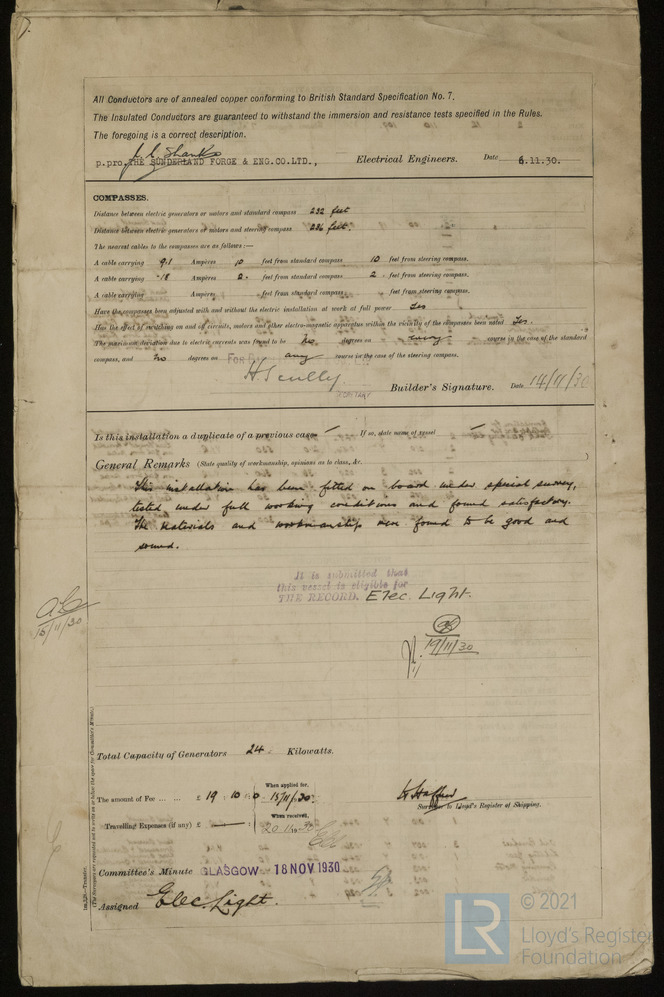 All Conductors are of annealed copper conforming to British Standard Specification No. 7.
The Insulated Conductors are guaranteed to withstand the immersion and resistance tests specified in the Rules.
The foregoing is a correct description.
J. Shanks
p.pro. THE SUNDERLAND FORGE & ENG.CO.LTD., Electrical Engineers. Date 6.11.30.
COMPASSES.
Distance between electric generators or motors and standard compass 232 feet
Distance between electric generators or motors and steering compass 236 feet.
The nearest cables to the compasses are as follows:—
A cable carrying 9.1 Amperes 10 feet from standard compass 10 feet from steering compass.
A cable carrying .18 Amperes 2. feet from standard compass 2. feet from steering compass.
A cable carrying Amperes feet from standard compass feet from steering compass.
Have the compasses been adjusted with and without the electric installation at work at full power Yes
Has the effect of switching on and off circuits, motors and other electro-magnetic apparatus within the vicinity of the compasses been noted Yes.
The maximum deviation due to electric currents was found to be No degrees on every course in the case of the standard
compass, and No degrees on any course in the case of the steering compass.
H. Scully
Builder's Signature. Date 14/11/30
Is this installation a duplicate of a previous case If so, state name of vessel
General Remarks (State quality of workmanship, opinions as to class, &c.
This installation has been fitted on board under special survey,
tested under full working conditions and found satisfactory.
The materials and workmanship were found to be good and
sound.
It is submitted that
this vessel is eligible for
THE RECORD. Elec. Light.
15/11/30
19/11/30
Total Capacity of Generators 24 Kilowatts.
When applied for,
The amount of Fee ... ... £ 19 : 10 : 0 15/11/30.
When received,
Travelling Expenses (if any) £ : 20.11.30
Surveyor to Lloyd's Register of Shipping.
Committee's Minute GLASGOW 18 NOV 1930
Assigned Elec. Light.
(The Surveyors are requested not to write on or below the space for Committee's Minute.)
LR
© 2021
Lloyd's Register
Foundation